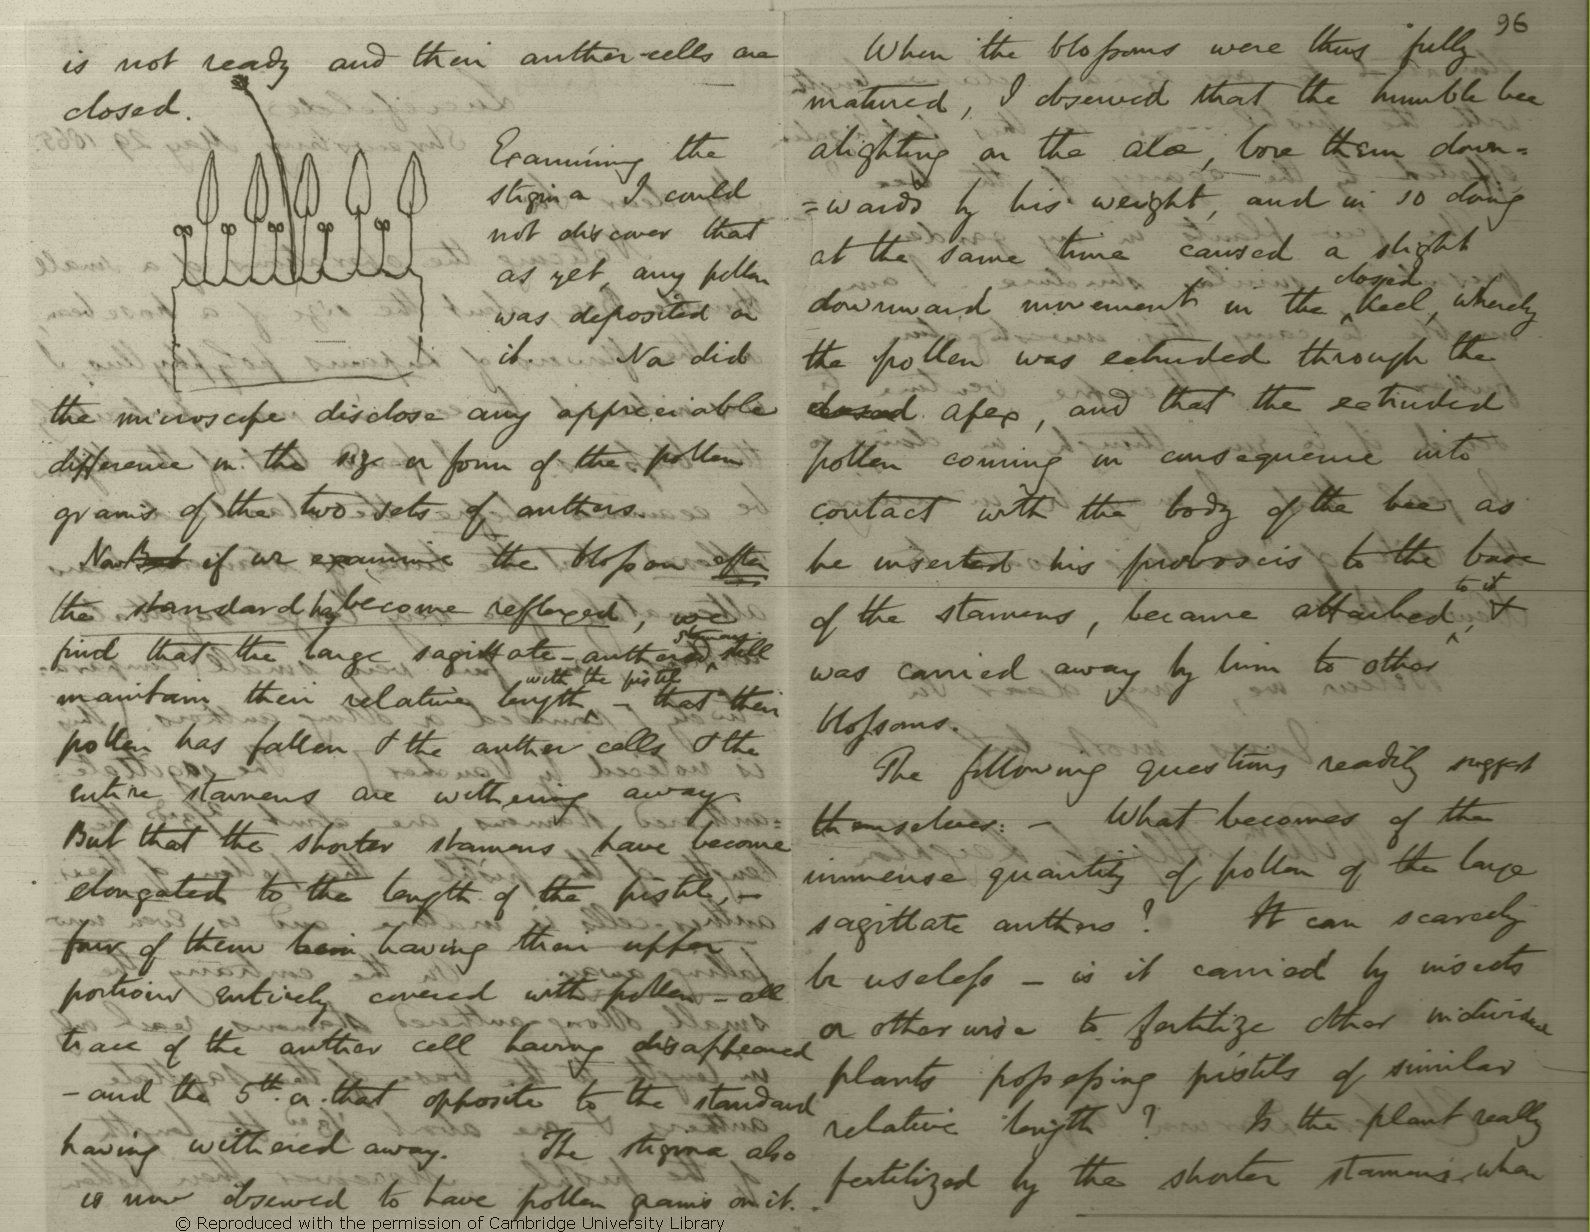 is not ready and their anther-cells are
closed.
Examining the
stigma I could
not discover that
as yet, any pollen
was deposited on
it. No did
the microscope disclose any appreciable
difference in the size or form of the pollen
grains of the two sets of anthers.
Now But if we examine the blossom after
the standard has become reflexed, we
stamens
find that the large sagittate-anthered still
with the pistil
maintain their relative length, - that their
pollen has fallen & the anther cells & the
entire stamens are withering away.
But that the shorter stamens have become
elongated to the length of the pistil, -
four of them having their upper
portions entirely covered with pollen - all
trace of the anther cell having disappeared
- and the 5th or that opposite to the standard
having withered away. The stigma also
is now observed to have pollen grains on it.
96
When the blossoms were thus fully
matured, I observed that the humble bee
alighting on the alæ, bore them down=
=wards by his weight, and in so doing
at the same time caused a slight
closed
downward movement in the keel, whereby
the pollen was extruded through the
closed apex, and that the extruded
pollen coming in consequence into
contact with the body of the bee as
he inserted his proboscis to the base
to it
of the stamens, became attached, &
was carried away by him to other
blossoms.
The following questions readily suggest
themselves: - What becomes of the
immense quantity of pollen of the large
sagittate anthers? It can scarcely
be useless - is it carried by insects
or otherwise to fertilize other individual
plants possessing pistils of similar
relative length? Is the plant really
fertilized by the shorter stamens when
© Reproduced with the permission of Cambridge University Library